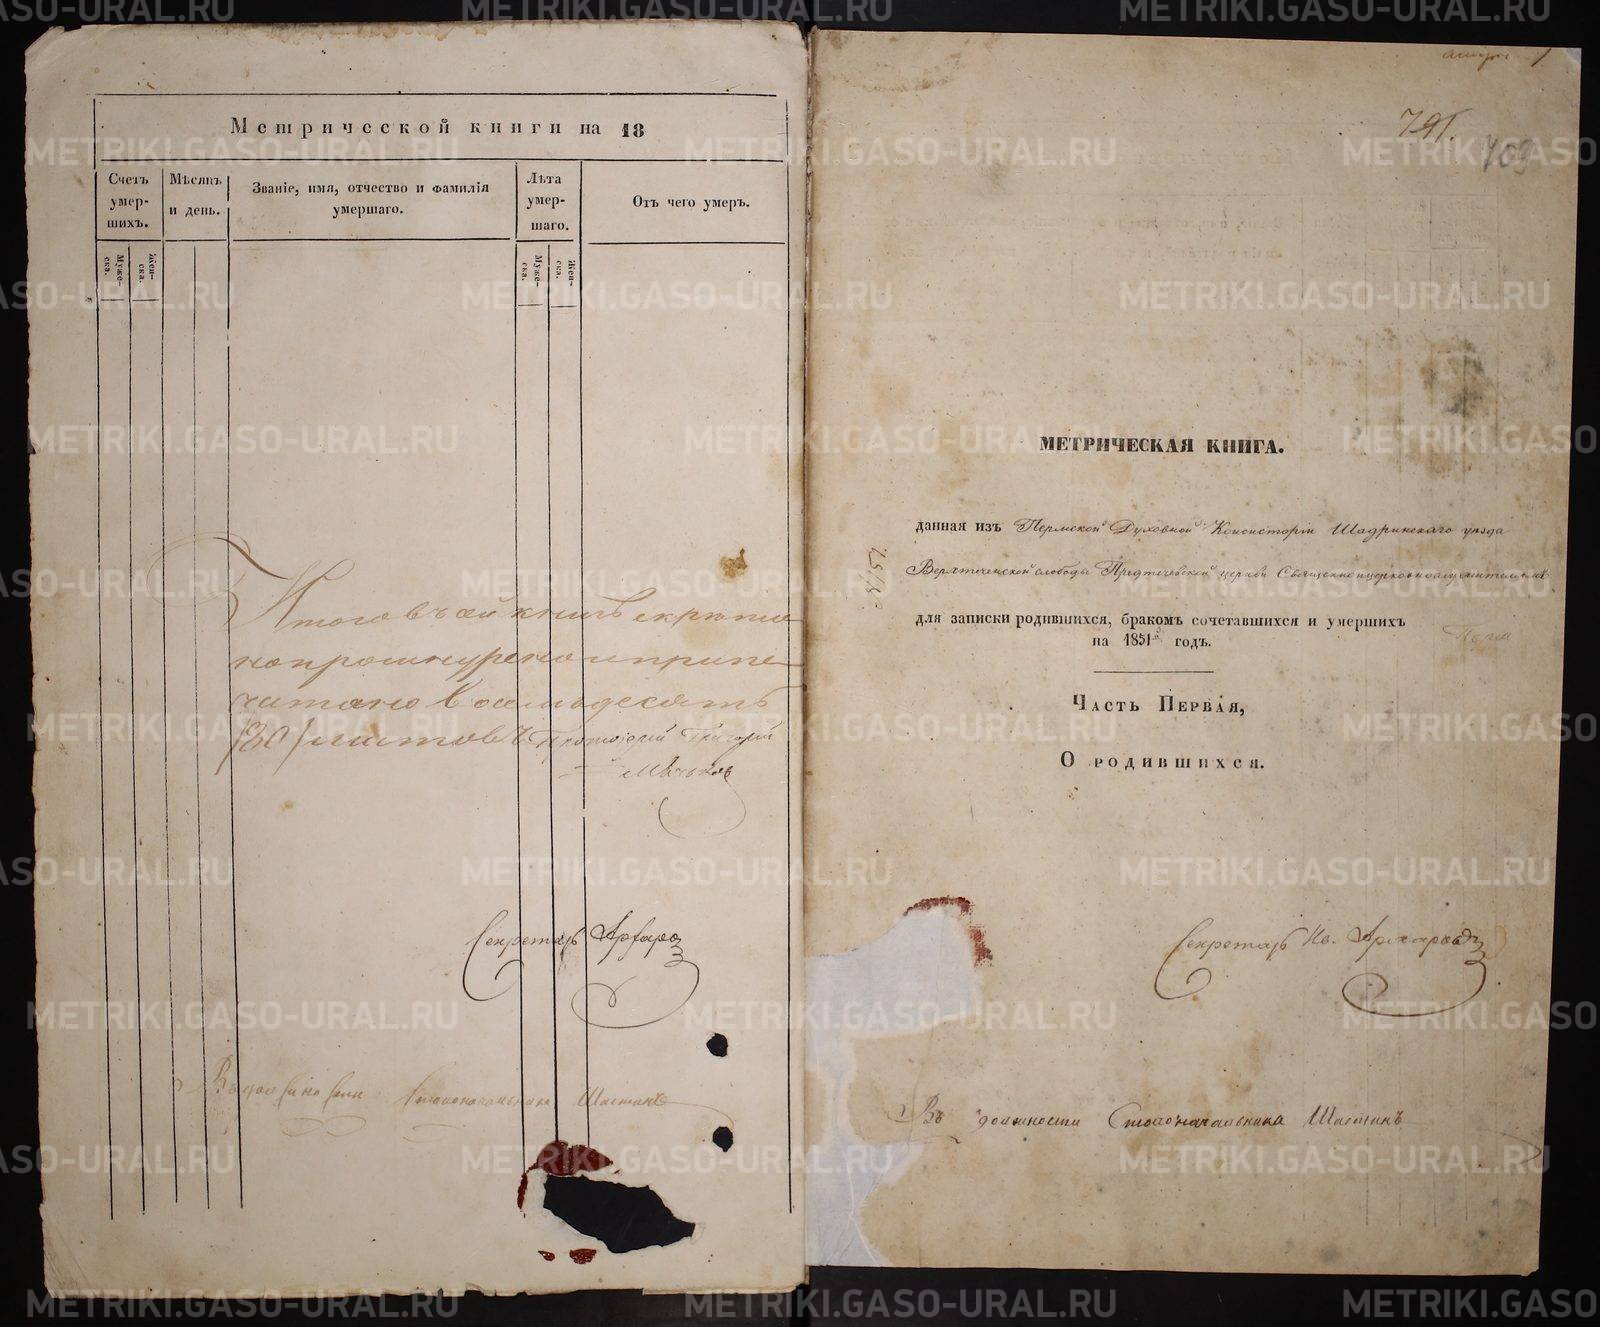 Метрической книги на 18
Счетъ умер-шихъ.
Мѣсяцъ и день.
Званіе, имя, отчество и фамилія умершаго.
Лѣта умер-шаго.
Отъ чего умеръ.
Муже-ска.
Жен-ска.
Муже-ска.
Жен-ска.
Итого въ сей книгѣ скрѣпле
но прошнуровано и припе
чатано Восемьдесятъ
/80/ листовъ Протоіерей Григорій
Секретарь
Столоначальника Шастинъ
709
МЕТРИЧЕСКАЯ КНИГА.
данная изъ Пермской Духовной Консисторіи Шадринскаго уѣзда
слободы Предтечевской церкви Священноцерковнослужителямъ
для записки родившихся, бракомъ сочетавшихся и умершихъ
на 1851й годъ.
Часть Первая,
О родившихся.
Секретарь Ив. Архаровъ
Въ должности Столоначальника Шастинъ
METRIKI.GASO-URAL.RU